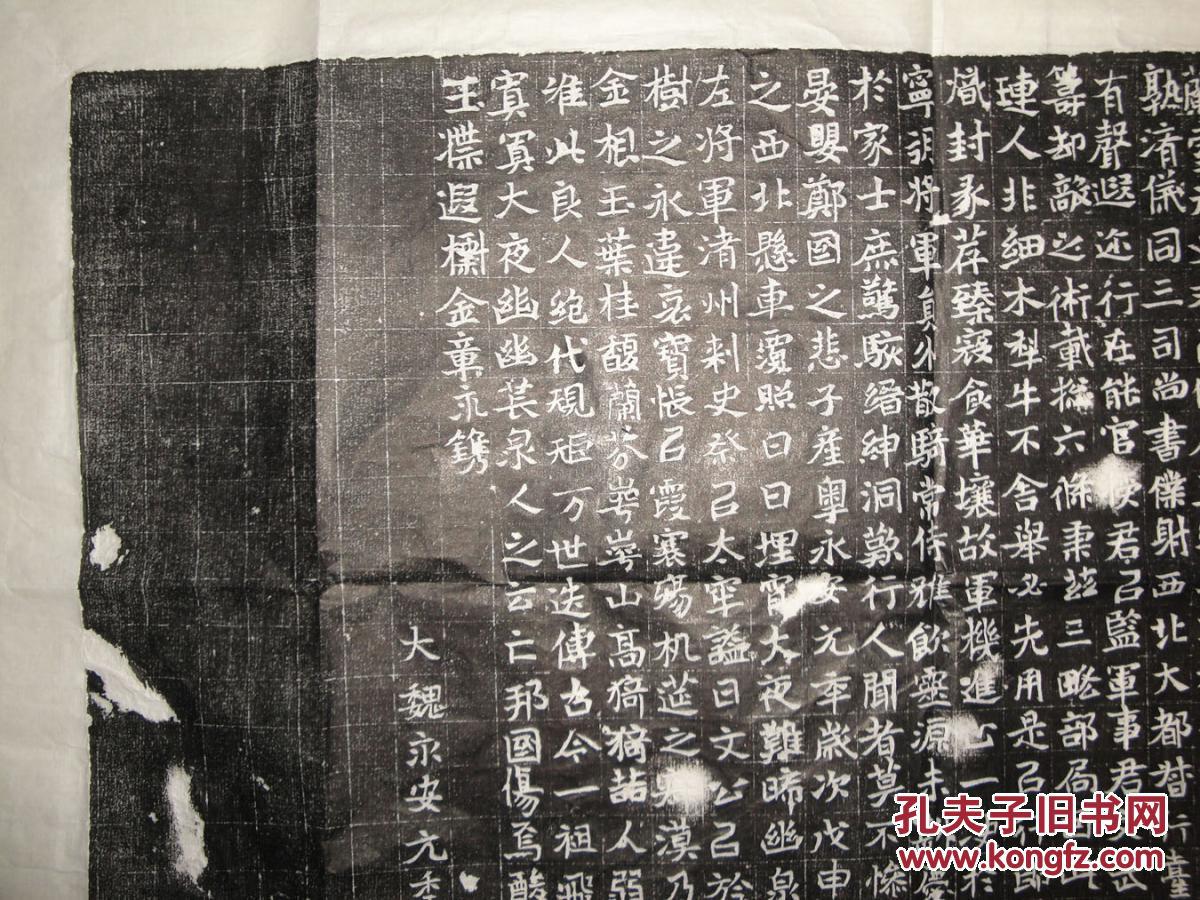 孰渚儀同三司尚書僕射西北大都督行臺
有聲遐迩行在能官
君已監軍事君
籌却敵之術載撫六條秉玆三略部局
連人非細木犁牛不舍舉必先用是已
熾封豕荐臻寇食華壤故軍機進止一
寧朔將軍員外散騎常侍雅飲靈源未
慶
於家士庶驚駭縉紳洞歎行人聞者莫不慘
晏嬰鄭國之悲子產粵永安元年歲次戊申
之西北懸車覆照日日埋霄大夜難晞幽泉
左將軍渚州刺史祭已太牢謚曰文公已於
樹之永違哀寶悵已霞褰殤机莚之
漠乃
金根玉葉桂馥蘭芬崿崿山高猗猗喆人弱
准此良人絕代硯矩万世迭傳古今一祖飛
寘寘大夜幽幽荒泉人之云亡邦國傷焉酸
玉牒遐
金章永鐫
大魏永安元季
孔夫子旧书网
www.kongfz.com